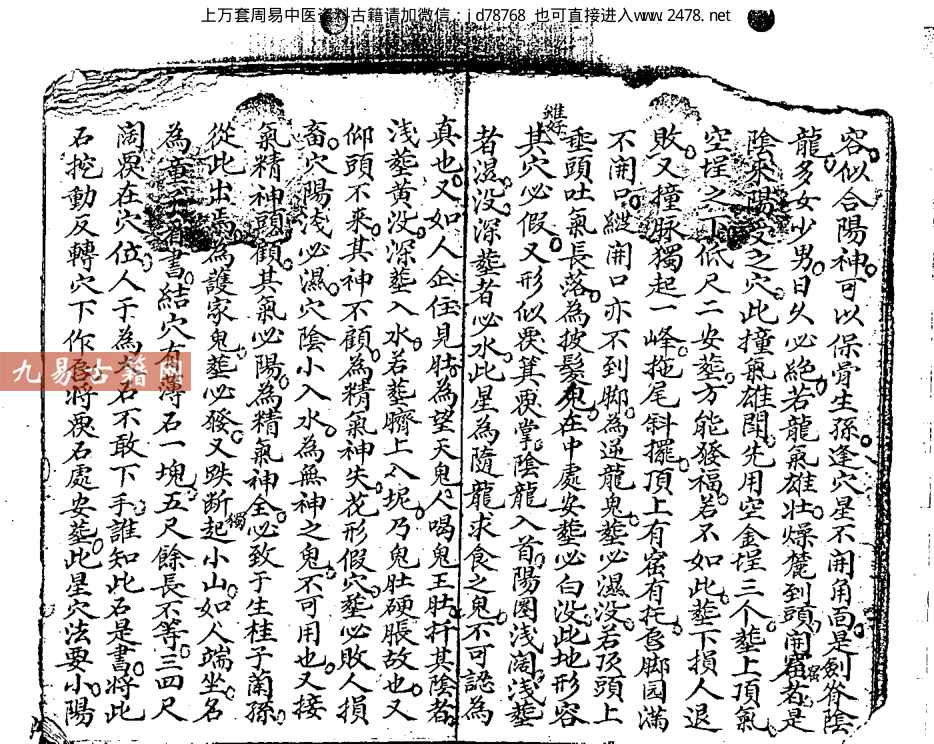 上万套周易中医资料古籍请加微信：jd78768 也可直接进入www.2478.net
容似合陽神可以保骨生孫逢穴星不開角面是剣脊陰
龍多女少男日久必絶若龍氣雄壯燥麓到頭開窩者是
陰來陽受之穴此撞氣雄閗先用空金埕三个塟上頂氣
空埕之下低尺二安塟方能發福若不如此塟下損人退
敗又撞脉獨起一峰拖尾斜擺頂上有窩有托唇脚园滿
不開口縱開口亦不到脚為逆龍鬼塟必濕没若頂頭上
垂頭吐氣長落為披鬃鬼在中處安塟必白没此地形容
雖好
其穴必假又形似硬箕硬掌陰龍入首陽圏浅阔浅塟
者濕没深塟者必水此星為隨龍求食之鬼不可認為
真也又如人企住見肚為望天鬼人喝鬼王肚扦其陰者
浅塟黄没深塟入水若塟臍上入坭乃鬼肚硬脹故也又
仰頭不来其神不顧為精氣神失花形假穴塟必敗人損
畜穴陽浅必濕穴陰小入水為無神之鬼不可用也又接
氣精神頭顧其氣必陽為精氣神全必致于生桂子蘭孫
從此出焉為護家鬼塟必發又跌断起小山如人端坐名
獨
為童子看書結穴有薄石一塊五尺餘長不等三四尺
阔硬在穴位人于為老石不敢下手誰知此石是書將此
石挖動反轉穴下作唇將硬石處安塟此星穴法要小陽
九易古籍网